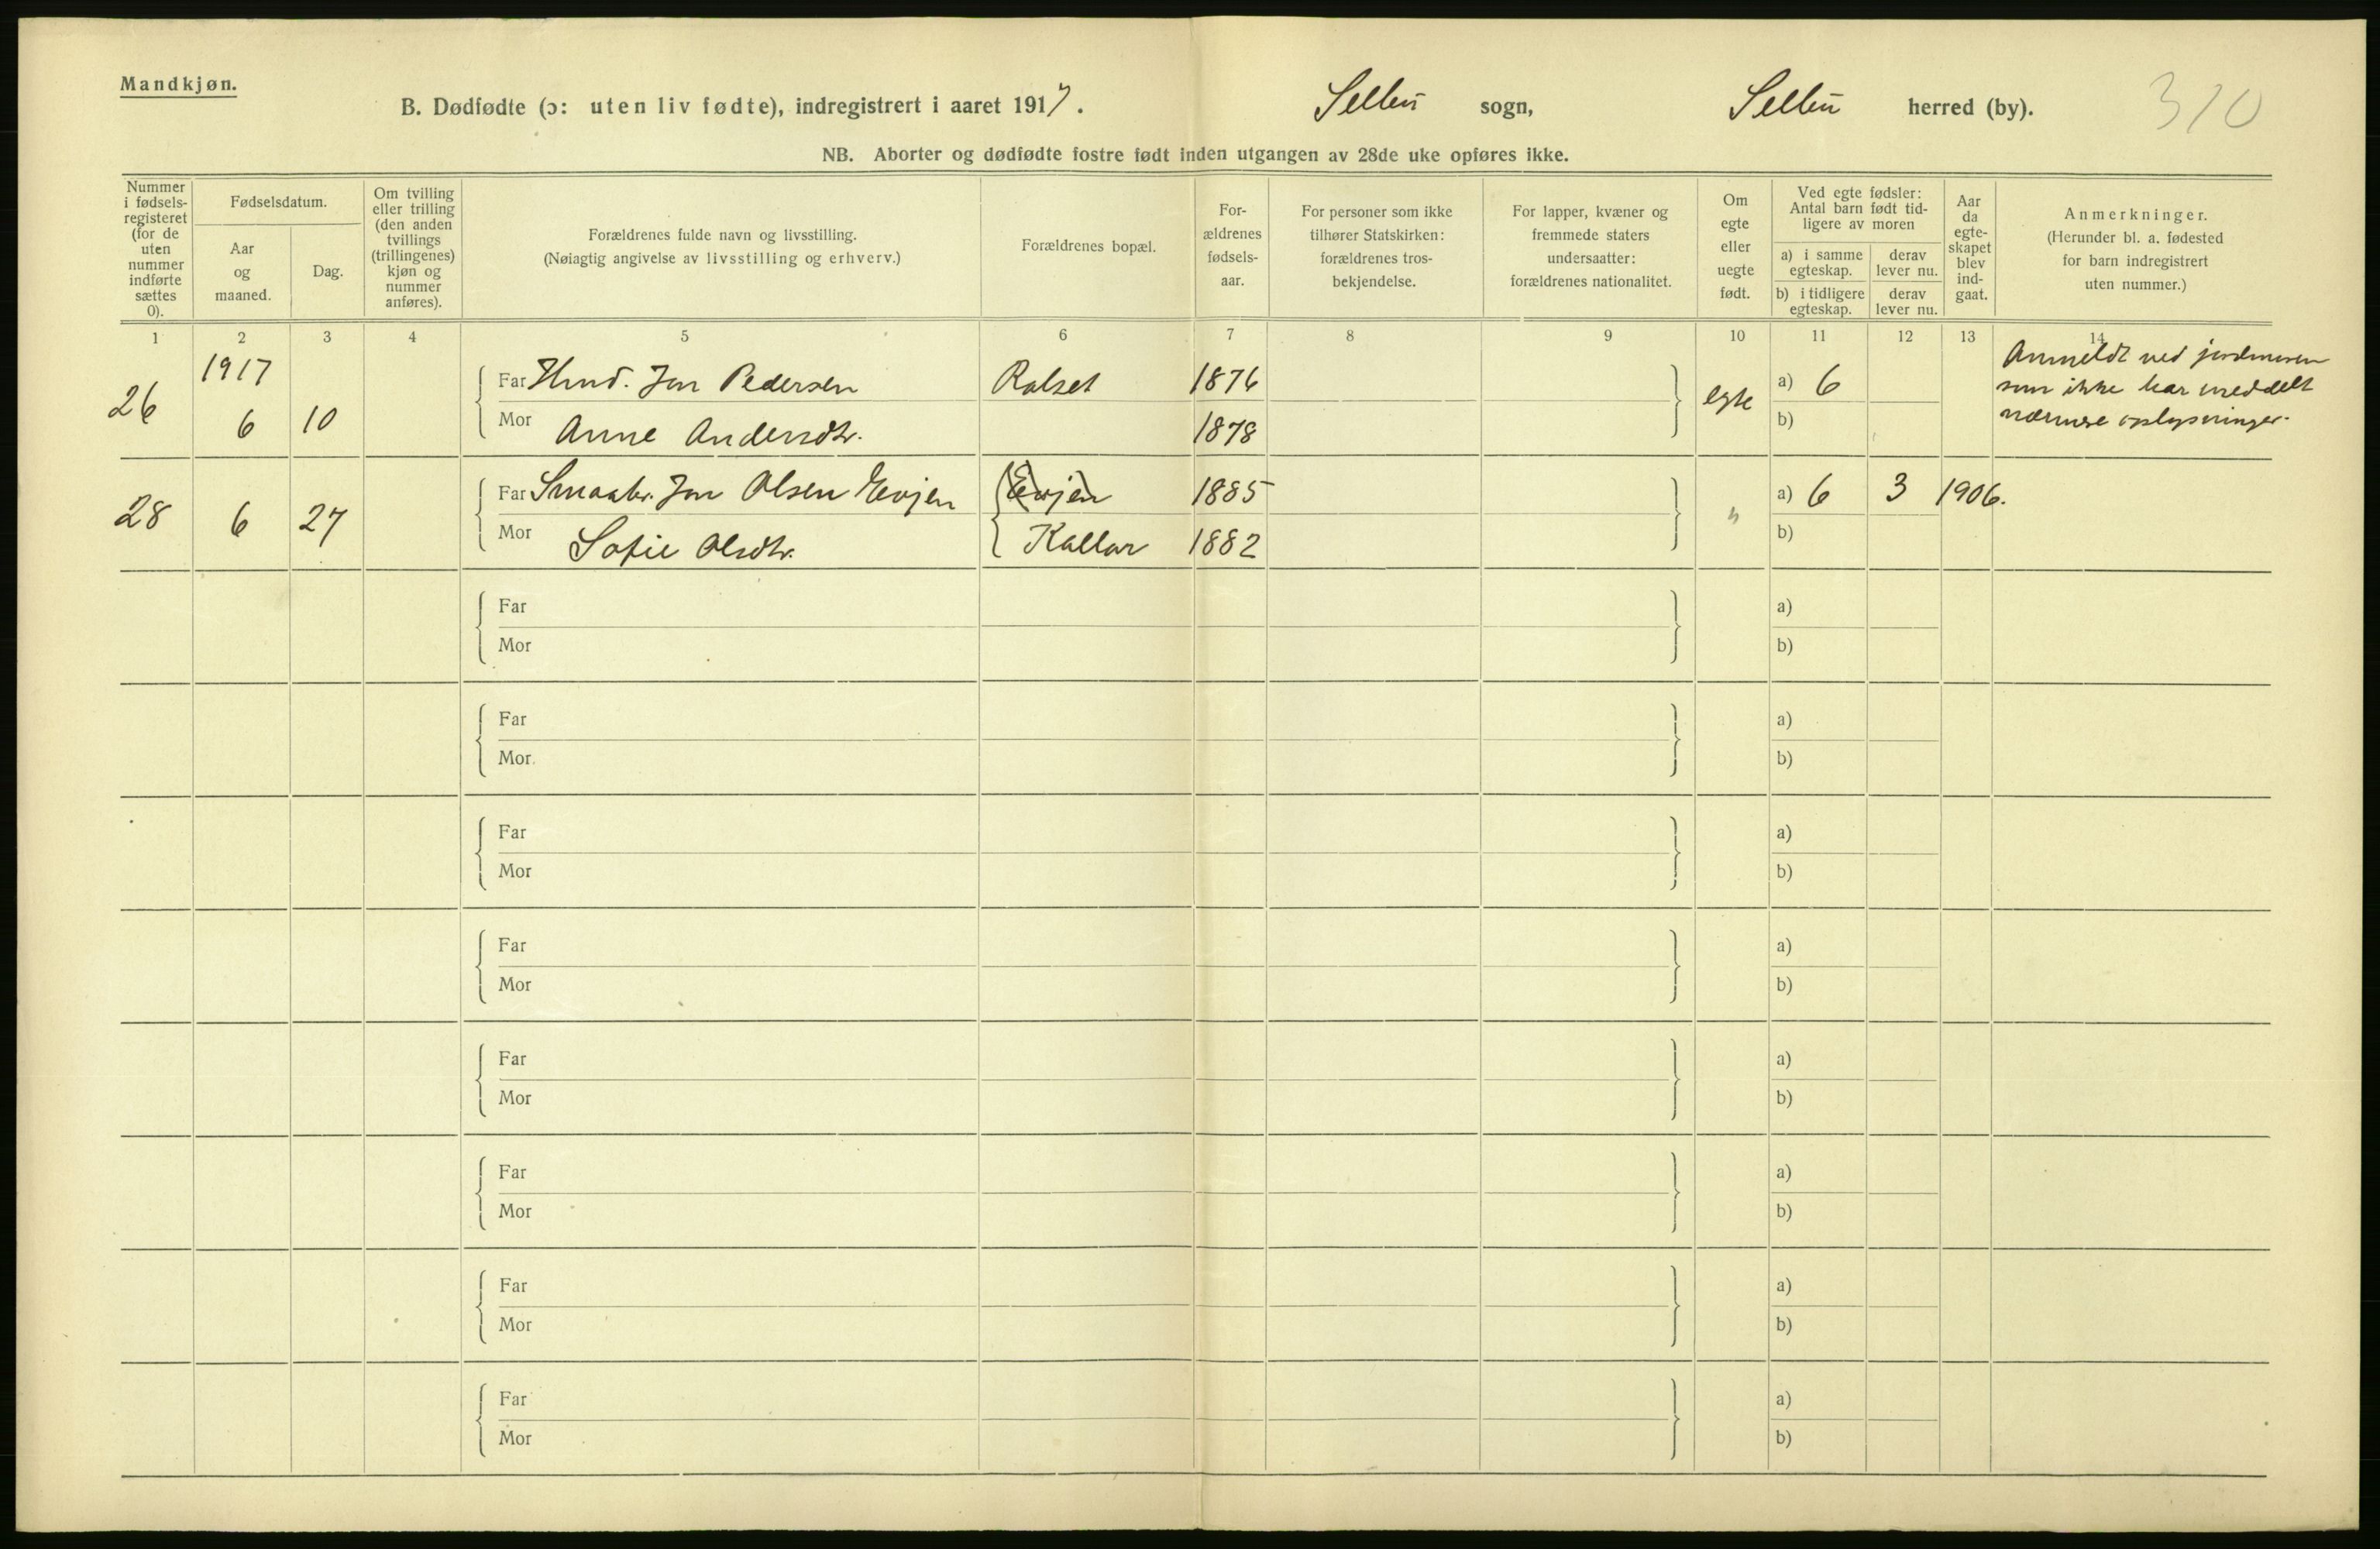 Mandkjøn.
B. Dødfødte (ɔ: uten liv fødte), indregistrert i aaret 1917. Selbu sogn, Selbu herred (by). 310
NB. Aborter og dødfødte fostre født inden utgangen av 28de uke opføres ikke.
Nummer i fødsels-registeret (for de uten nummer indførte sættes 0).
Fødselsdatum.
Aar og maaned.
Dag.
Om tvilling eller trilling (den anden tvillings (trillingenes) kjøn og nummer anføres).
Forældrenes fulde navn og livsstilling.
(Nøiagtig angivelse av livsstilling og erhverv.)
Forældrenes bopæl.
For-ældrenes fødsels-aar.
For personer som ikke tilhører Statskirken: forældrenes tros-bekjendelse.
For lapper, kvæner og fremmede staters undersaatter: forældrenes nationalitet.
Om egte eller uegte født.
Ved egte fødsler: Antal barn født tid-ligere av moren
a) i samme egteskap.
derav lever nu.
b) i tidligere egteskap.
derav lever nu.
Aar da egte-skapet blev ind-gaat.
Anmerkninger.
(Herunder bl. a. fødested for barn indregistrert uten nummer.)
1 2 3 4 5 6 7 8 9 10 11 12 13 14
1917
26 6 10
Far Jon Pedersen Ralset 1876 egte a) 6
Mor Anne Andersdtr. 1878 b)
Anmeldt ved jordmoren
som ikke har meddelt
nærmere oplysninger.
28 6 27
Far Smaabr. Jon Olsen Evjen Evjen 1885 " a) 6 3 1906.
Mor Sofie Olsdtr. Kallar 1882 b)
Far a)
Mor b)
Far a)
Mor b)
Far a)
Mor b)
Far a)
Mor b)
Far a)
Mor b)
Far a)
Mor b)
Far a)
Mor b)
Far a)
Mor b)